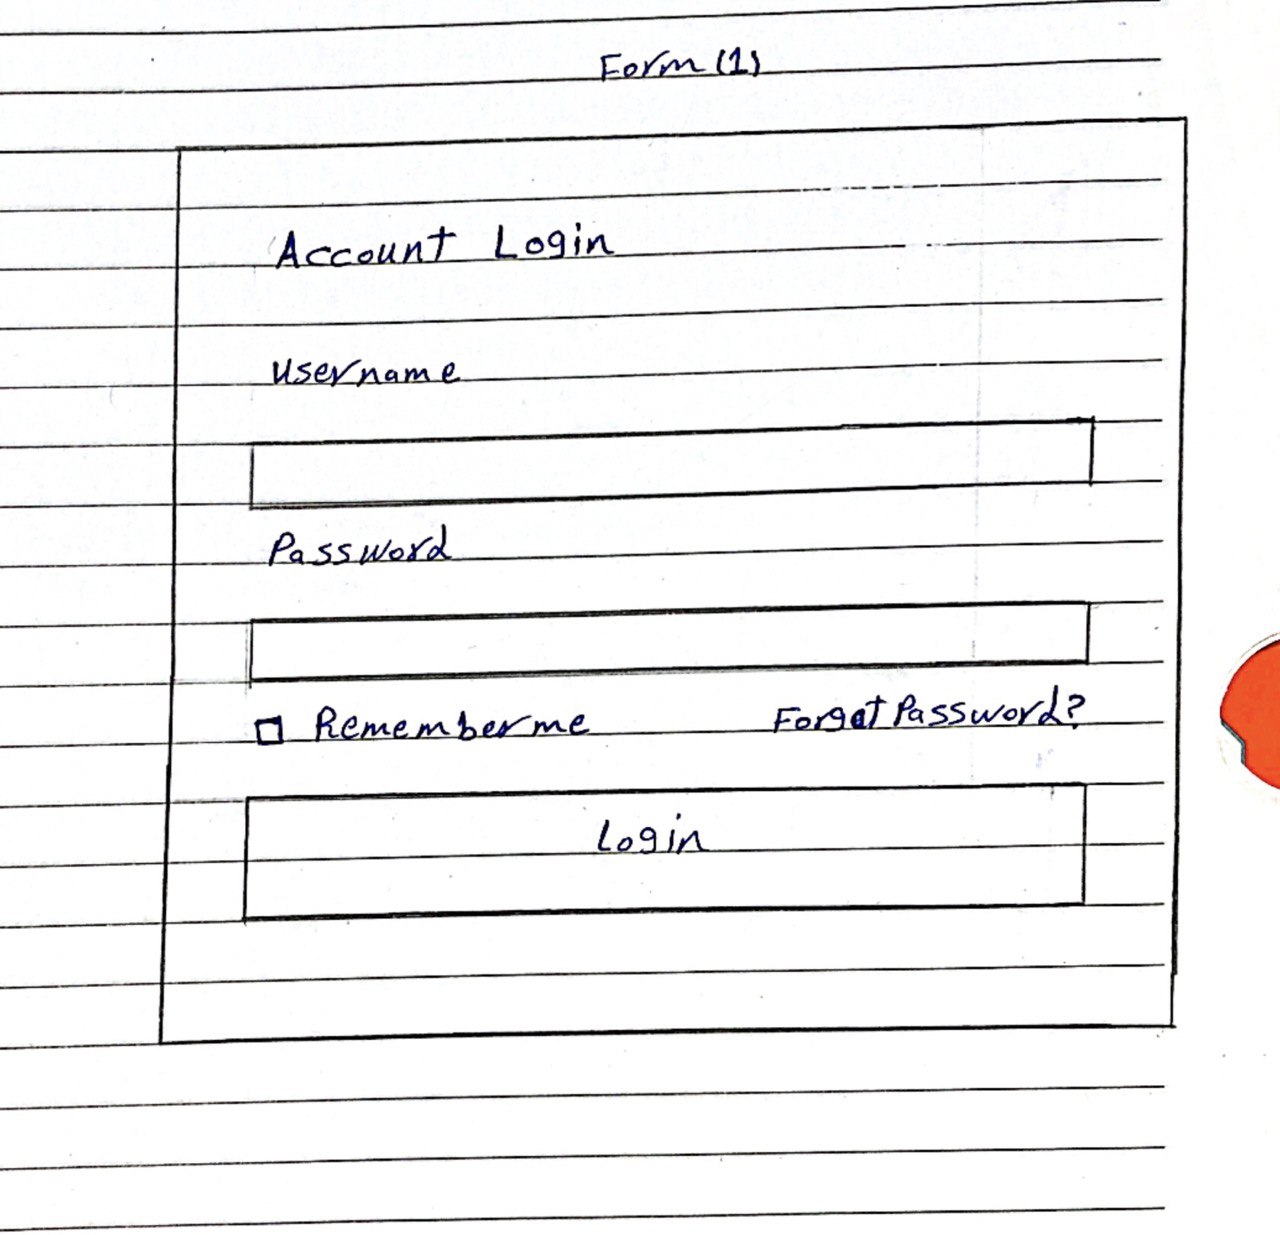 Form (1)
Account Login
Username
Password
Remember me
Forgot Password?
Login